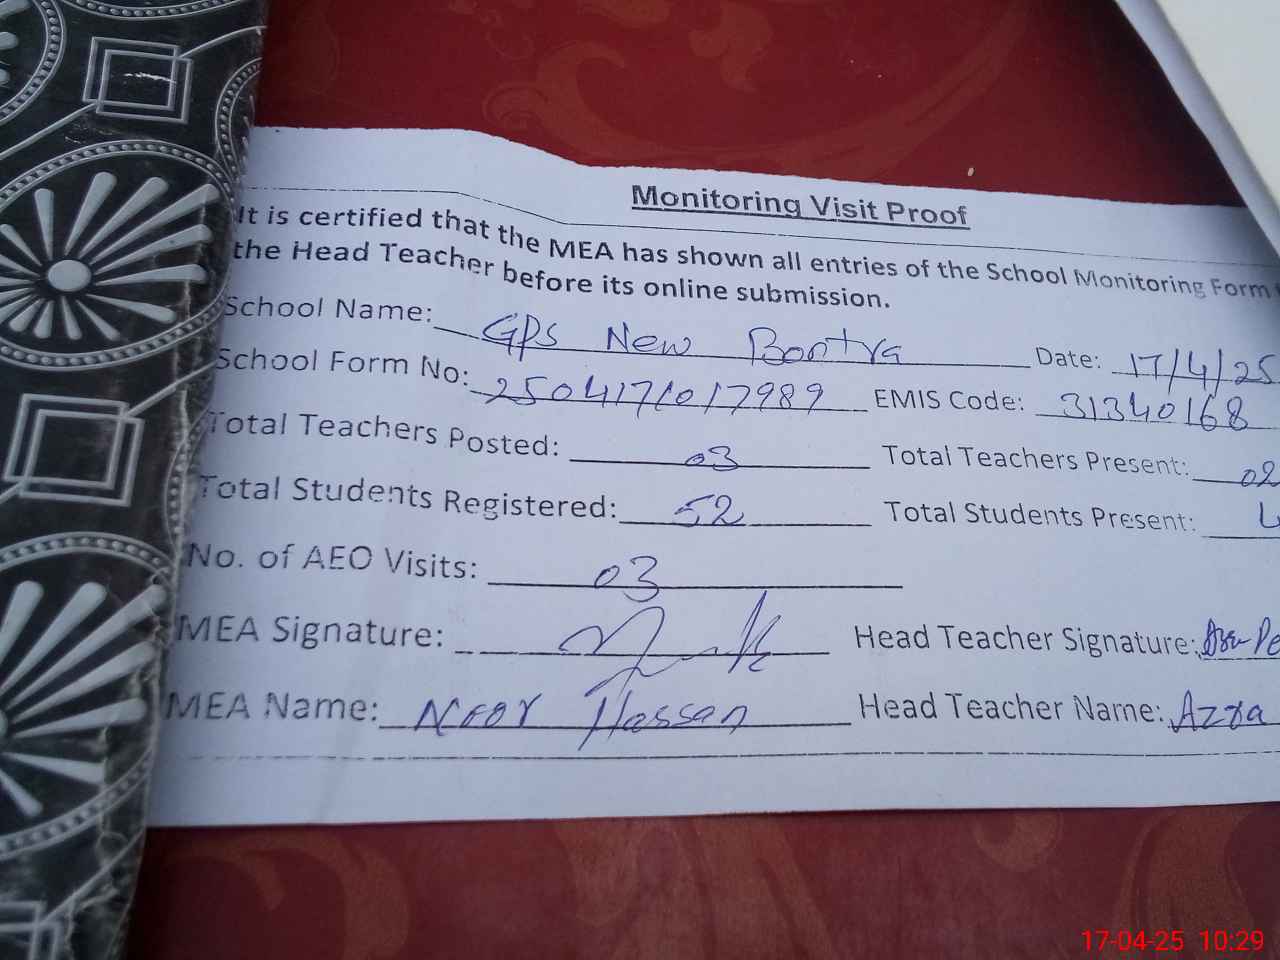 Monitoring Visit Proof
It is certified that the MEA has shown all entries of the School Monitoring Form
the Head Teacher before its online submission.
School Name: GPS New Bontra Date: 17/4/25
School Form No: 2504171017989 EMIS Code: 31340168
Total Teachers Posted: 03 Total Teachers Present: 02
Total Students Registered: 52 Total Students Present:
No. of AEO Visits: 03
MEA Signature: Head Teacher Signature:
MEA Name: Noor Hassan Head Teacher Name: Azra
17-04-25 10:29